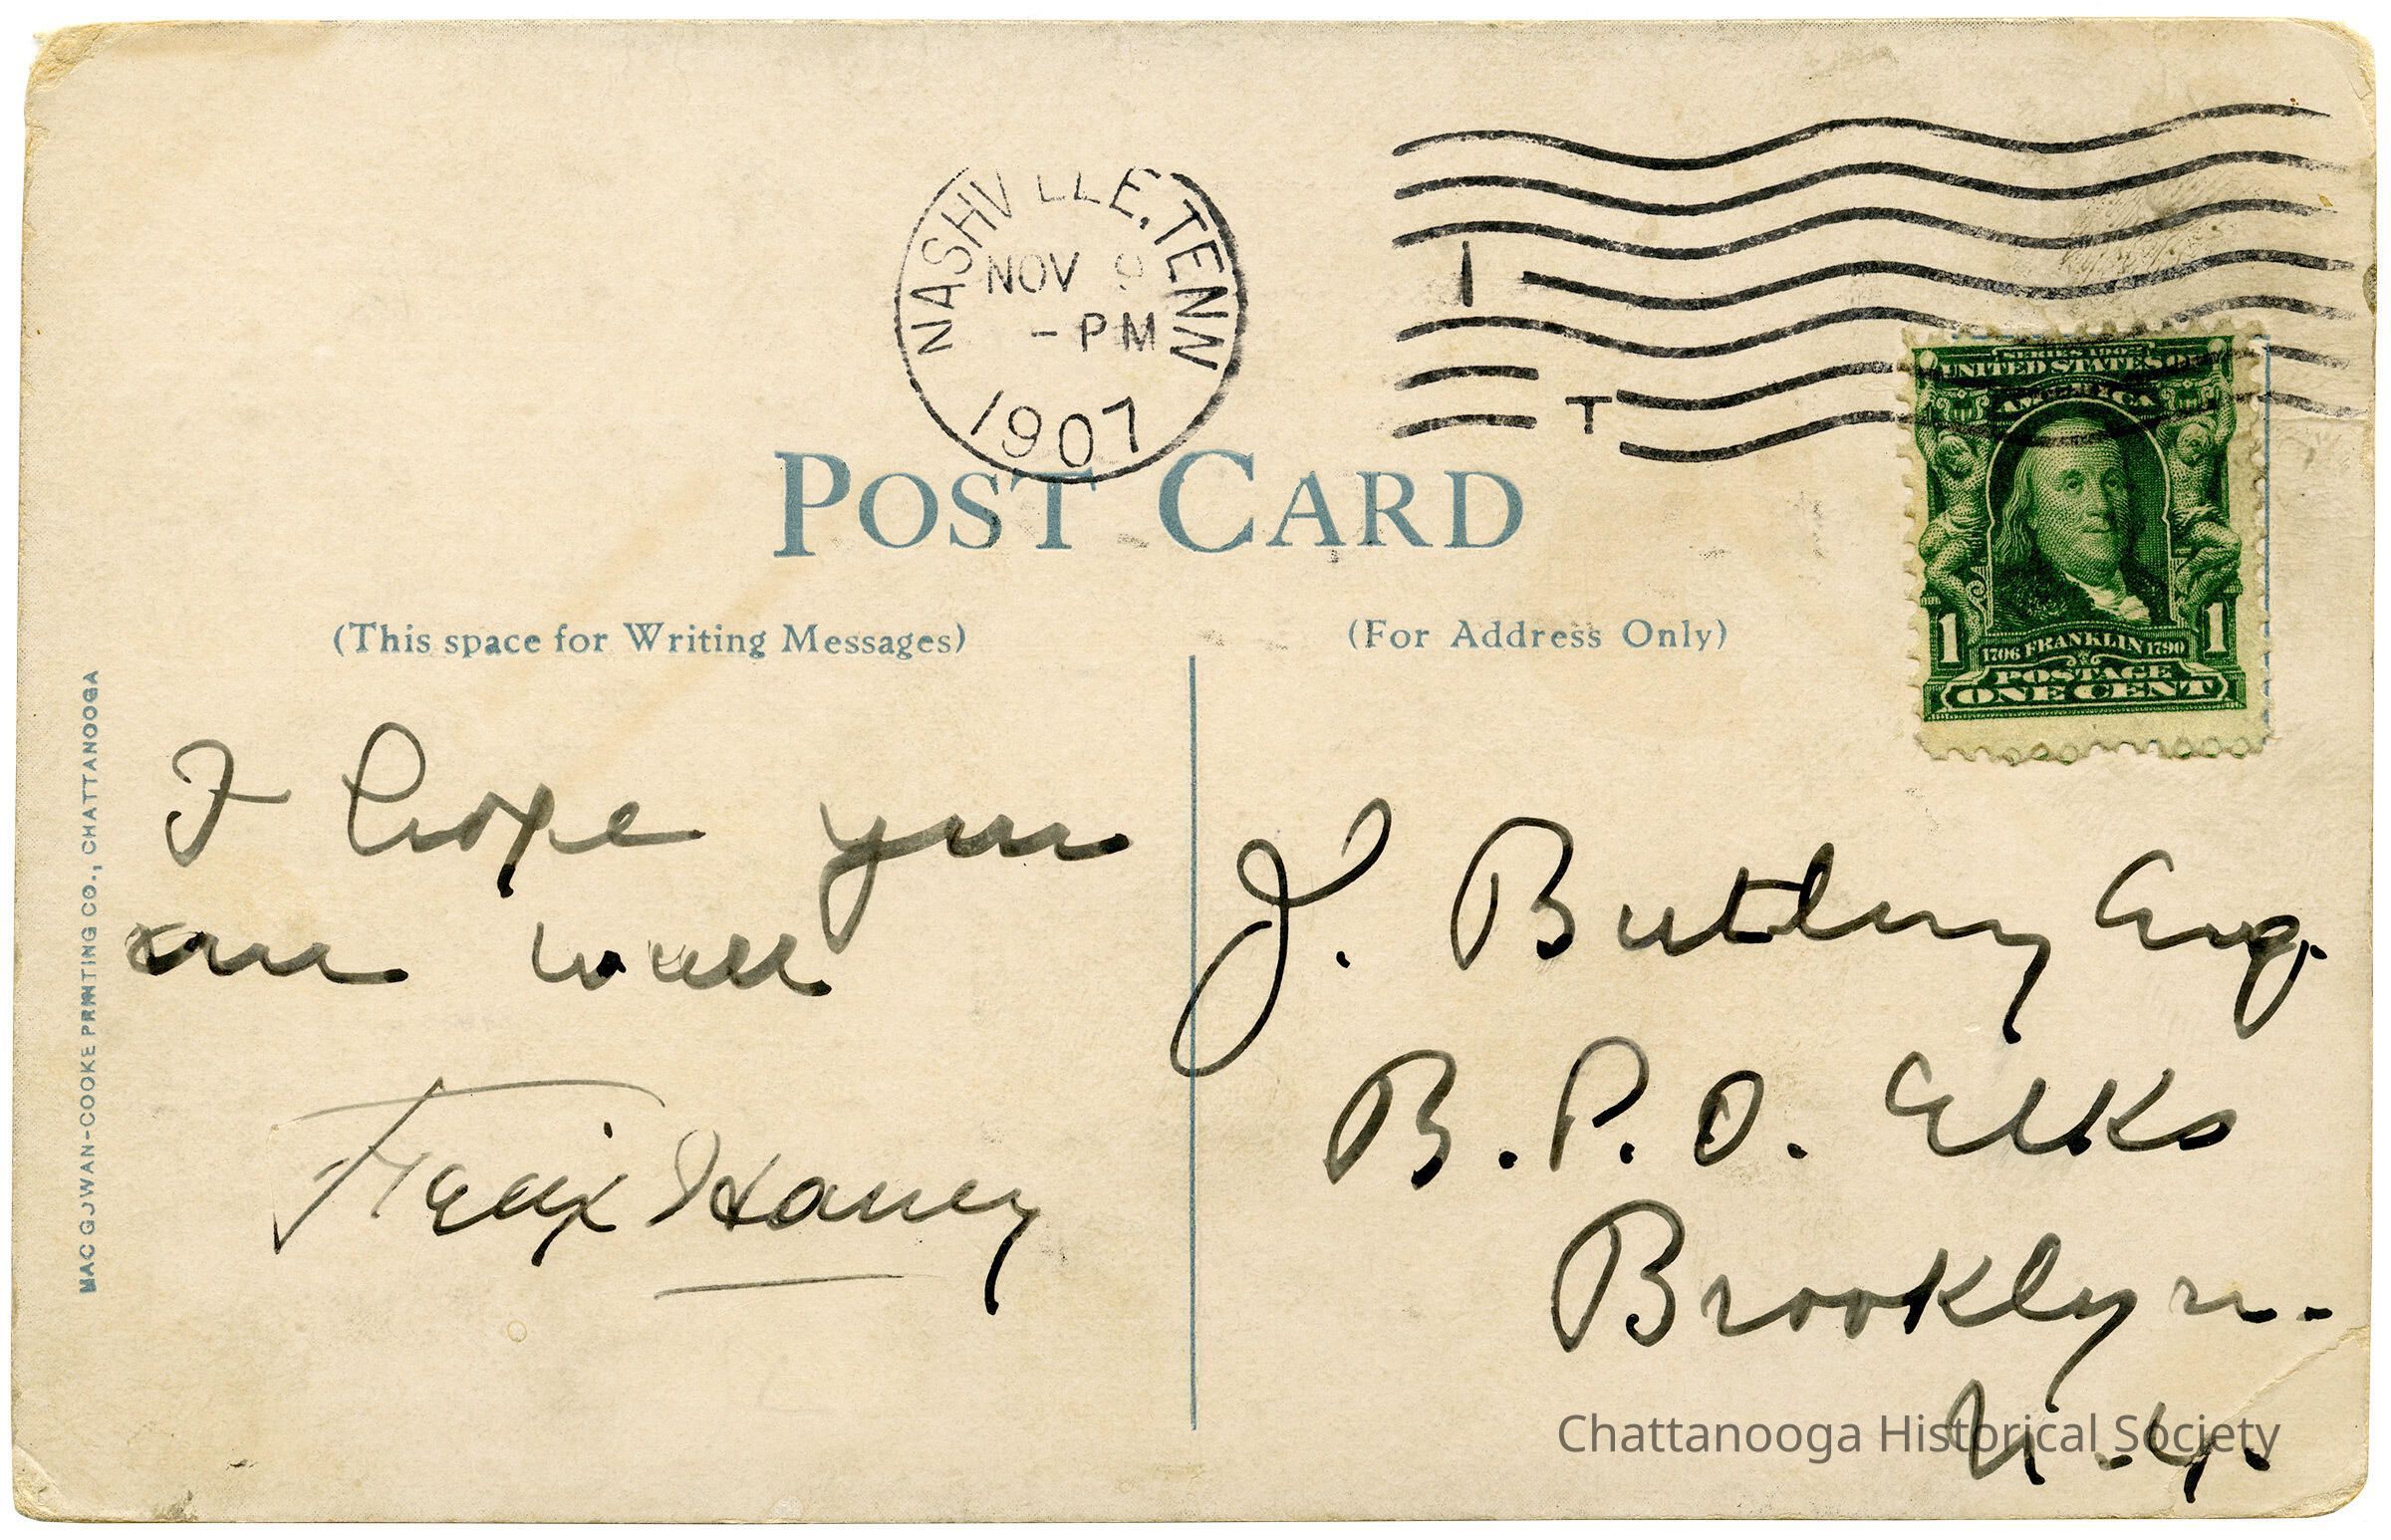 NASHVILLE, TENN
NOV 9
- PM
1907
I
T
SERIES 1902
UNITED STATES OF
AMERICA
1706 FRANKLIN 1790
1 1
POSTAGE
ONE CENT
POST CARD
(This space for Writing Messages)
(For Address Only)
MAC GOWAN-COOKE PRINTING CO., CHATTANOOGA
I hope you
are well
Felix Haney
J. Butlery Esq.
B.P.O. Elks
Brooklyn.
N.Y.
Chattanooga Historical Society